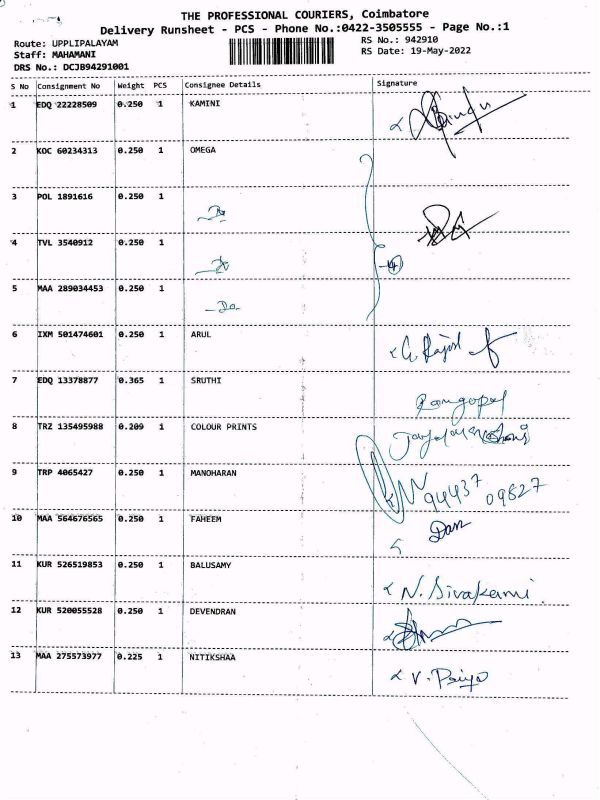 THE PROFESSIONAL COURIERS, Coimbatore
Delivery Runsheet - PCS - Phone No.:0422-3505555 - Page No.:1
Route: UPPLIPALAYAM
RS No.: 942910
Staff: MAHAMANI
RS Date: 19-May-2022
DRS No.: DCJB94291001
S No Consignment No Weight PCS Consignee Details Signature
1 EDQ 22228509 0.250 1 KAMINI
2 KOC 60234313 0.250 1 OMEGA
3 POL 1891616 0.250 1
4 TVL 3540912 0.250 1
5 MAA 289034453 0.250 1
-Do-
6 IXM 501474601 0.250 1 ARUL
7 EDQ 13378877 0.365 1 SRUTHI
Ramgopal
8 TRZ 135495988 0.209 1 COLOUR PRINTS
9 TRP 4065427 0.250 1 MANOHARAN
94437 09827
10 MAA 564676565 0.250 1 FAHEEM
11 KUR 526519853 0.250 1 BALUSAMY
N. Sivakami
12 KUR 520055528 0.250 1 DEVENDRAN
13 MAA 275573977 0.225 1 NITIKSHAA
V. Priya